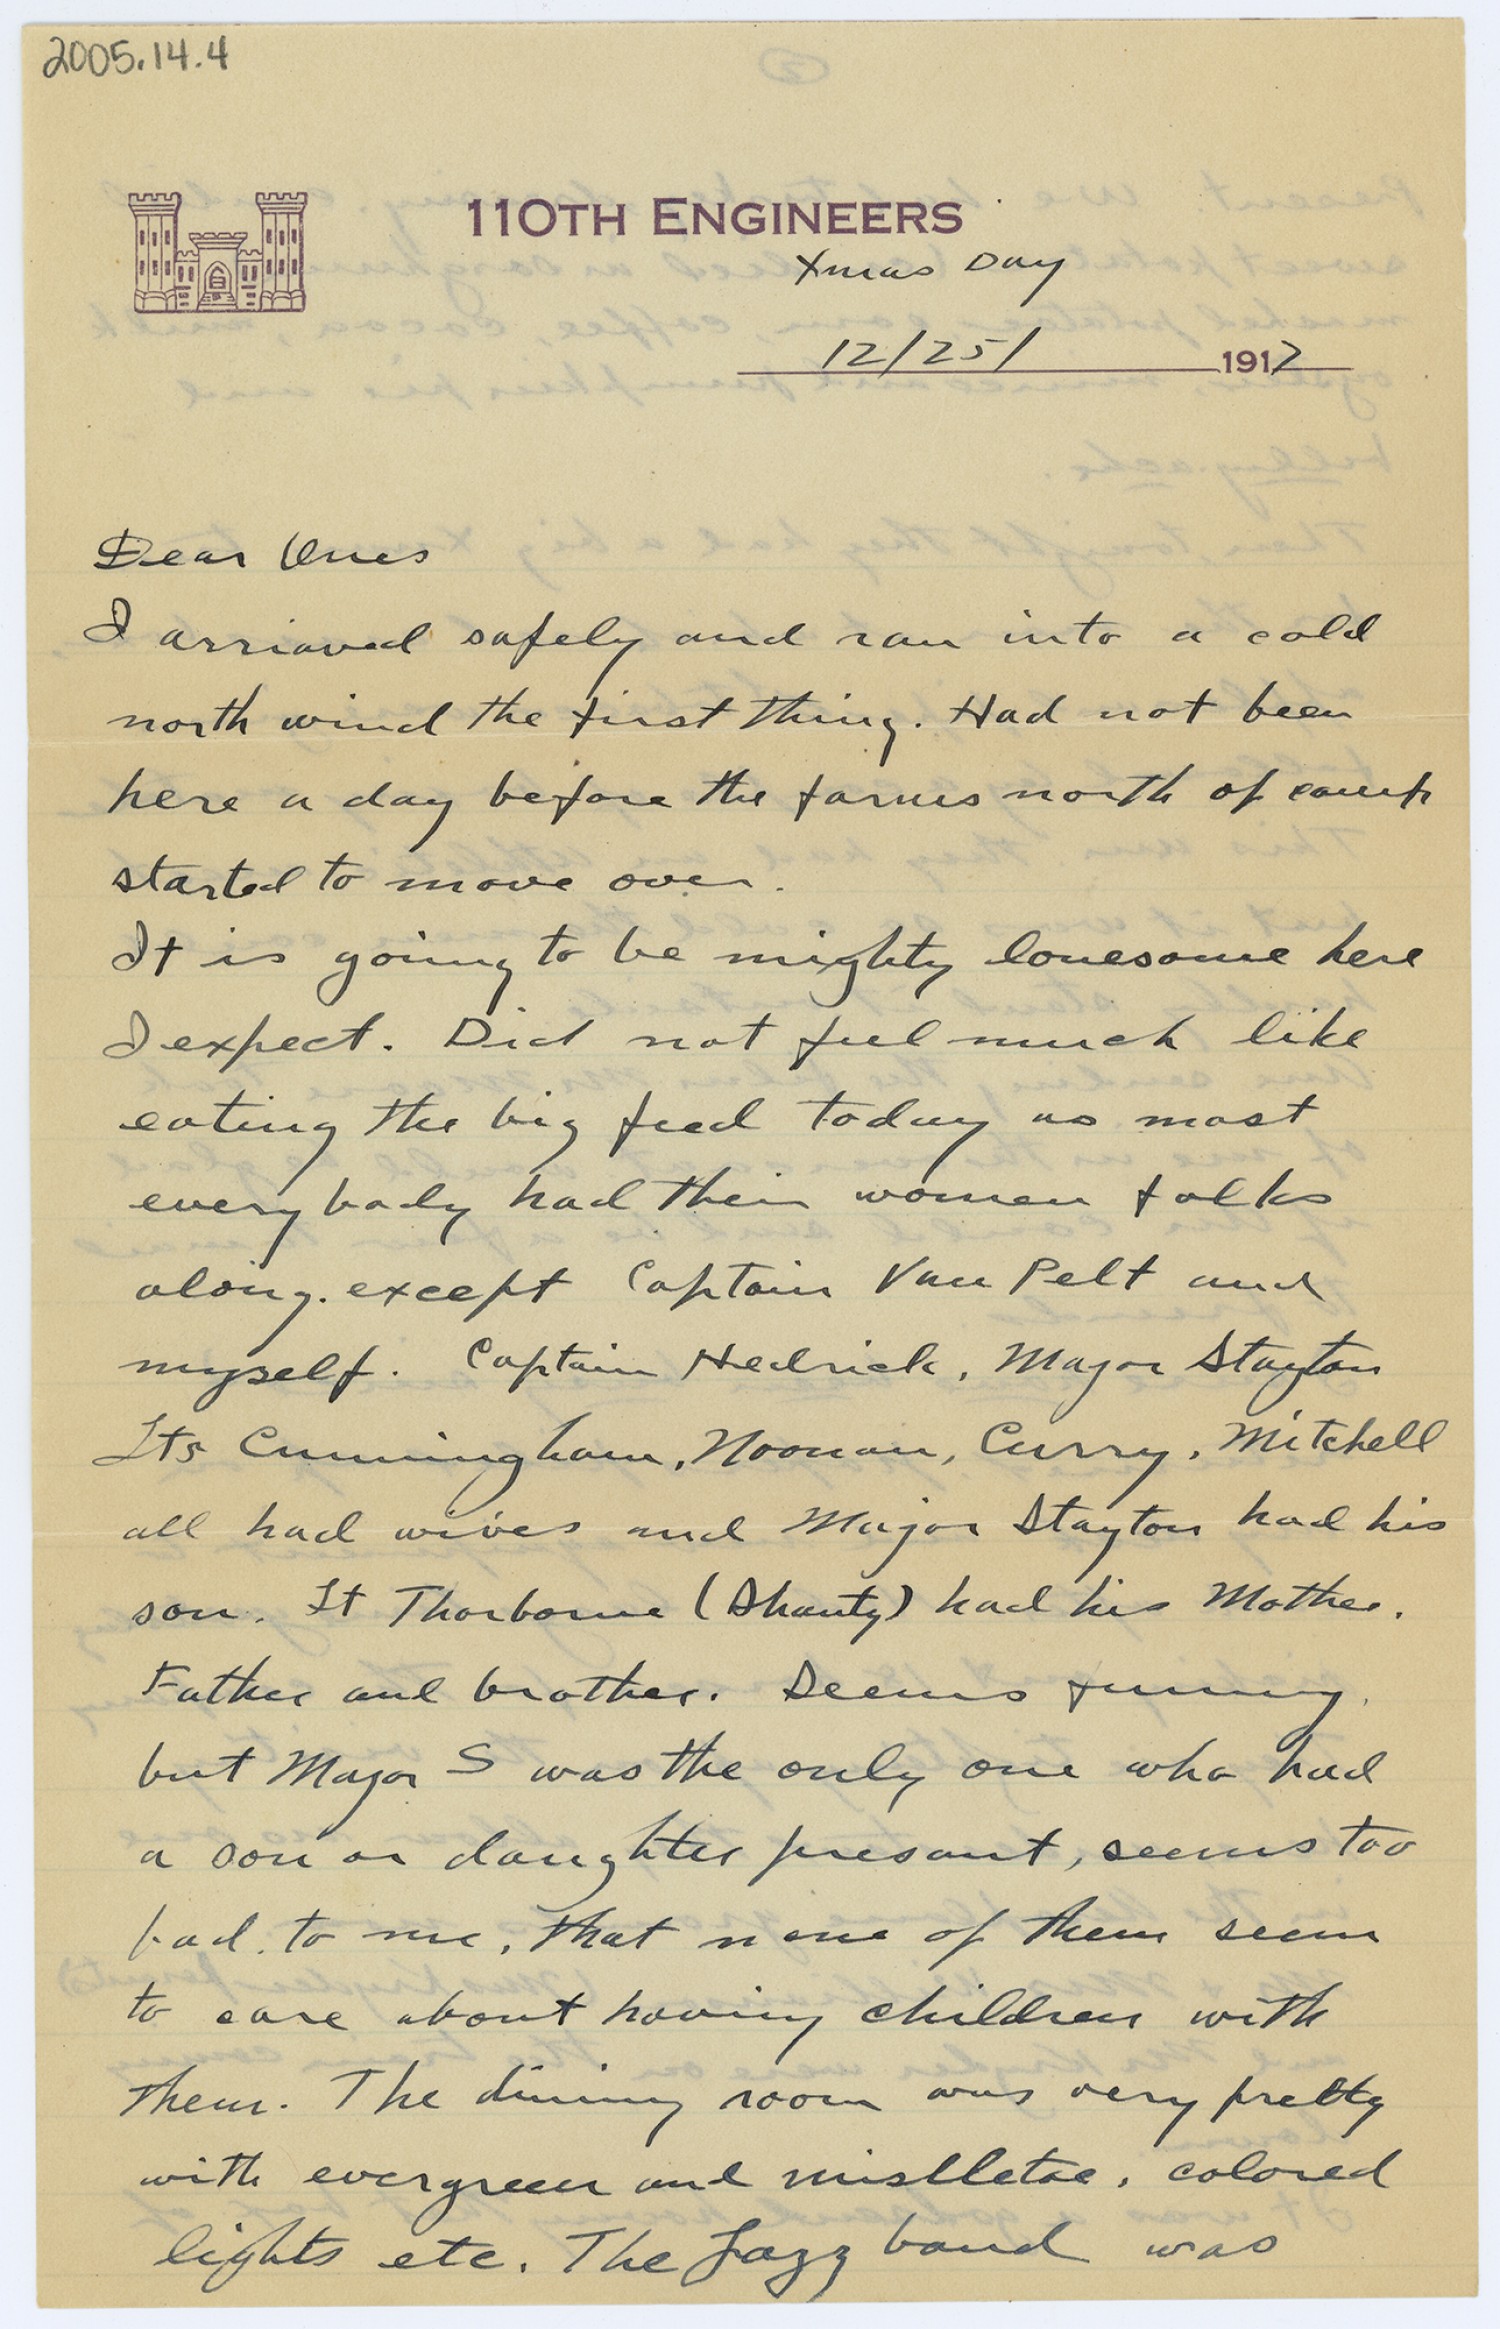 2005.14.4
110TH ENGINEERS
Xmas Day
12/25/ 1917
Dear Ones
I arriaved safely and ran into a cold
north wind the first thing. Had not been
here a day before the farms north of camp
started to move over.
It is going to be mighty lonesome here
I expect. Did not feel much like
eating the big feed today as most
every body had their women folks
along. except Captain Van Pelt and
myself. Captain Hedrick, Major Stayton
Lts Cunningham, Noonan, Curry, Mitchell
all had wives and Major Stayton had his
son. Lt Thorborne (Shanty) had his Mother,
Father and brother. Seems funny,
but Major S was the only one who had
a son or daughter present, seems too
bad to me, that none of them seem
to care about having children with
them. The dining room was very pretty
with evergreen and mislletoe, colored
lights etc. The Jazz band was